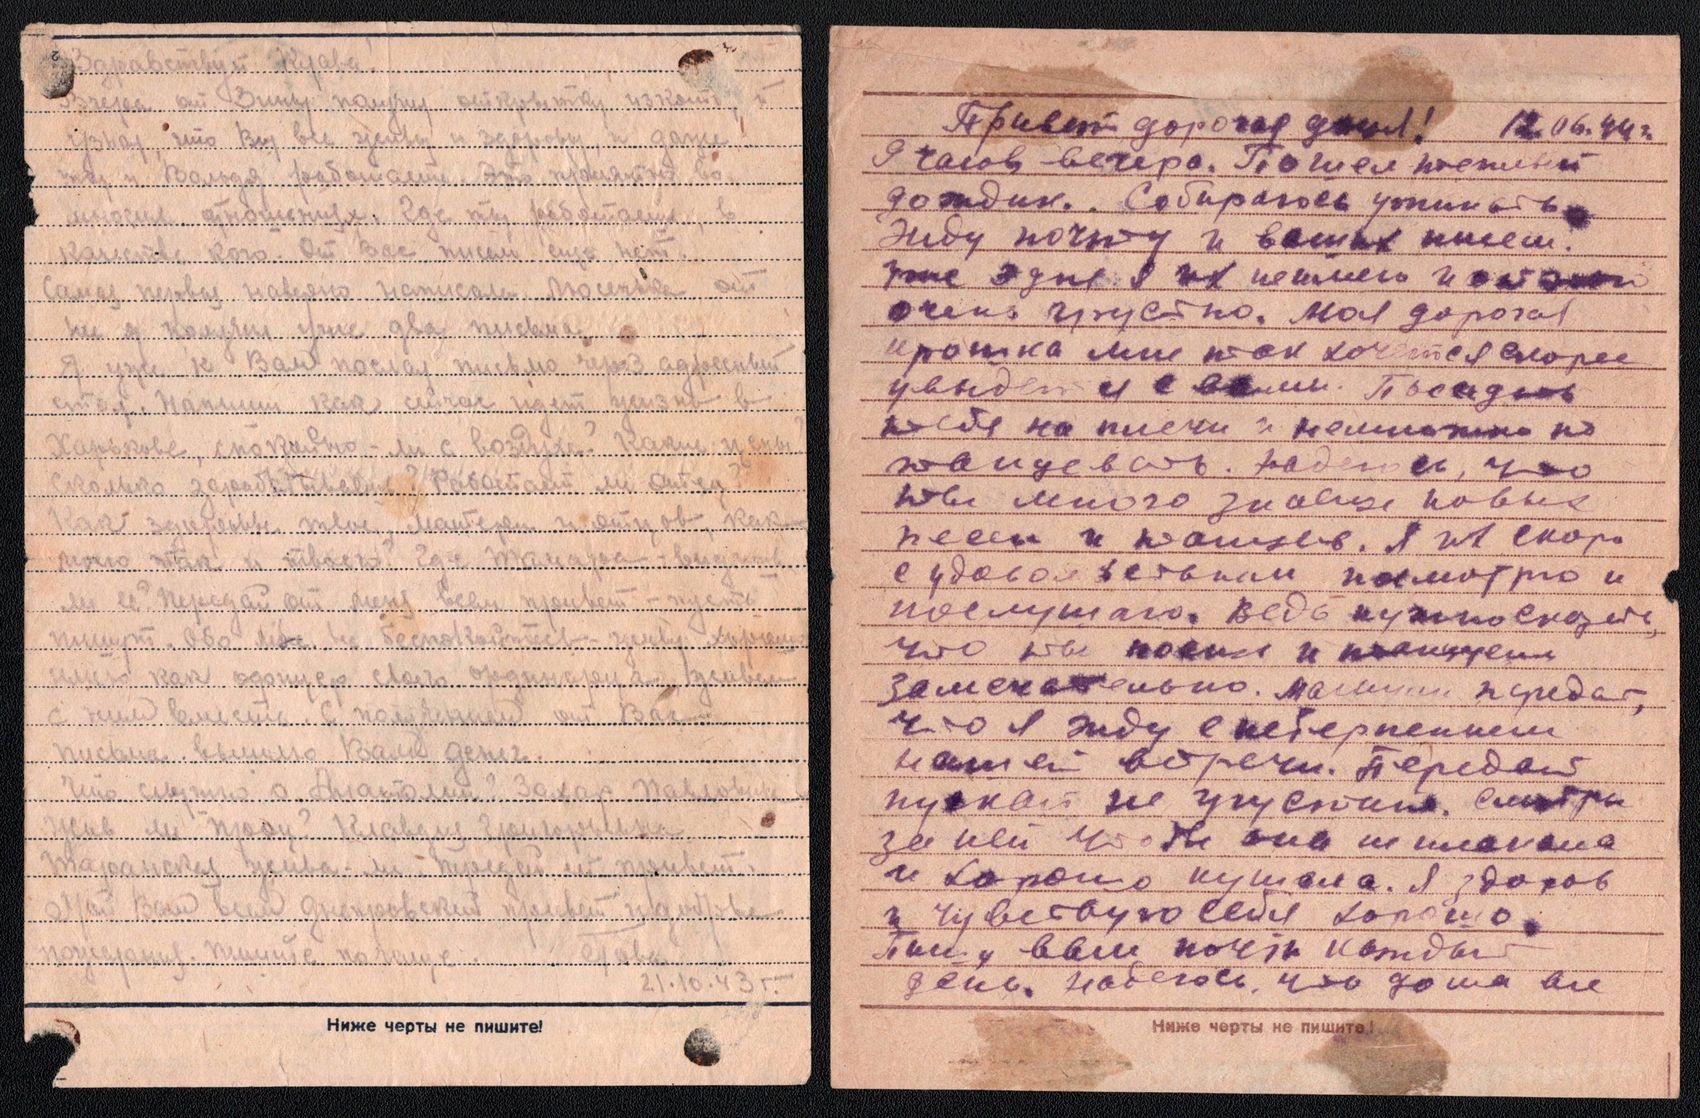 Здравствуй Клава!
Вчера от Зины получил открытку, и
узнал, что Вы все живы и здоровы, и даже
ты и Володя работаете. Это приятно во
многих отношениях. Где ты работаешь, в
качестве кого. От Вас писем ещё нет.
Самая первая наверно написала Люсенька от
неё я получил уже два письма
Я уже к Вам послал письмо через адресный
стол. Напиши как сейчас идет жизнь в
Харькове, спокойно-ли с воздуха? Какие цены?
Сколько зарабатываешь? Работает ли отец?
Как здоровье твоё, матерей и отцов, как
моего так и твоего? Где Тамара - видишь
ли её? Передай от меня всем привет - пусть
пишут. Обо мне не беспокойтесь - живу хорошо
имею как офицер своего ординарца, живём
с ним вместе. С получением от Вас
письма вышлю Вам денег.
Что слышно о Анатолии? Захар Павлович
жив ли Клавдия Григорьевна
жива-ли передай ей привет.
Мой Вам всем днепровский привет и добрые
пожелания. Пишите почаще.
21.10.43 г.
Ниже черты не пишите!
Привет дорогая доня! 12.06.44 г.
9 часов вечера. Пошел теплый
дождик. Собираюсь ужинать.
Жду почту и ваших писем.
Уже 3 дня я их не имею и
очень грустно. Моя дорогая
крошка мне так хочется скорее
увидется с вами. Посадить
тебя на плечи и немножко по
танцевать. Надеюсь, что
ты много знаешь новых
песен и танцев. Я их скоро
с удовольствием посмотрю и
послушаю. Ведь нужно сказать,
что ты поешь и танцуешь
замечательно. Мамуси передай,
что я жду с нетерпением
нашей встречи. Передай
пускай не грустит. Смотри
за ней чтобы она не плакала
и хорошо кушала. Я здоров
и чувствую себя хорошо.
Пишу вам почти каждый
день. Надеюсь, что дома все
Ниже черты не пишите!